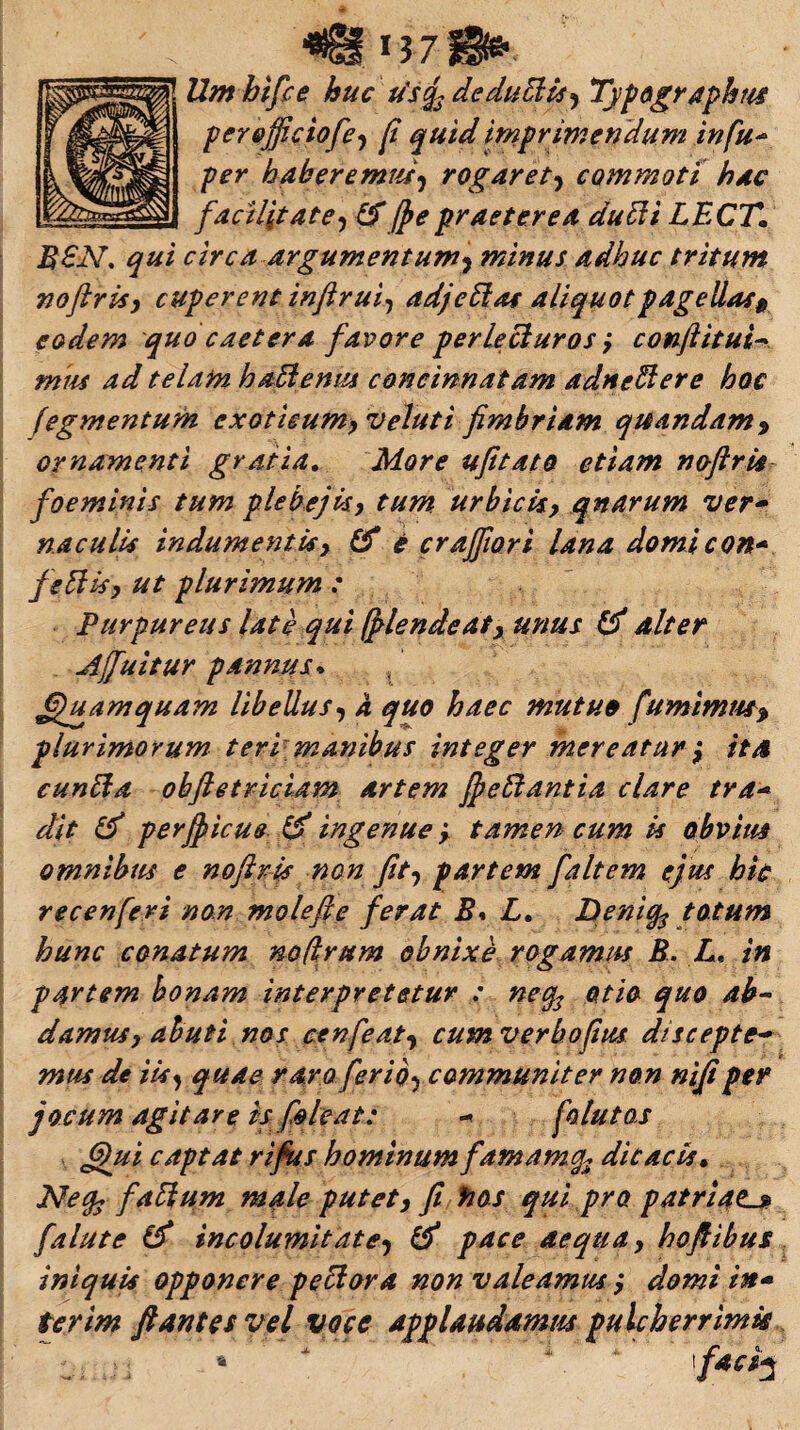 137
CUm hiſce huc uſq; deductis, Typographus
perofficioſe, ſi quid imprimendum inſu-
per haberemus, rogaret, commoti hac
facilitate, & ſpe praeterea ducti LECT.
BEN. qui circa argumentum, minus adhuc tritum
noſtris, cuperent inſtrui, adjectas aliquot pagellas,
eodem quo caetera favore perlecturos; conſtitui-
mus ad telam hactenus concinnatam adnectere hoc
ſegmentum exoticum, veluti fimbriam quandam,
ornamenti gratia. More uſitato etiam noſtris
foeminis tum plebejis, tum urbicis, qnarum ver-
naculis indumentis, & è craſſiori lana domi con-
fectis, ut plurimum:
Purpureus latè qui ſplendeat, unus & alter
Aſſuitur pannus.
Quamquam libellus, à quo haec mutuo ſumimus,
plurimorum teri manibus integer mereatur; ita
cuncta obſtetriciam artem ſpectantia clare tra-
dit & perſpicue & ingenue; tamen cum is obvius
omnibus e noſtris non ſit, partem ſaltem ejus hic
recenſeri non moleſte ferat B. L. Deniq; totum
hunc conatum noſtrum obnixè rogamus B. L. in
partem bonam interpretetur: neq; otio quo ab-
damus, abuti nos cenſeat, cum verboſius discepte-
mus de iis, quae raro ſeriò, communiter non niſi per
jocum agitare is ſoleat: - ſolutos
Qui captat riſus hominum famamq; dicacis.
Neq; factum male putet, ſi nos qui pro patriae
ſalute & incolumitate, & pace aequa, hoſtibus
iniquis opponere pectora non valeamus; domi in-
terim ſtantes vel voce applaudamus pulcherrimis
faci-